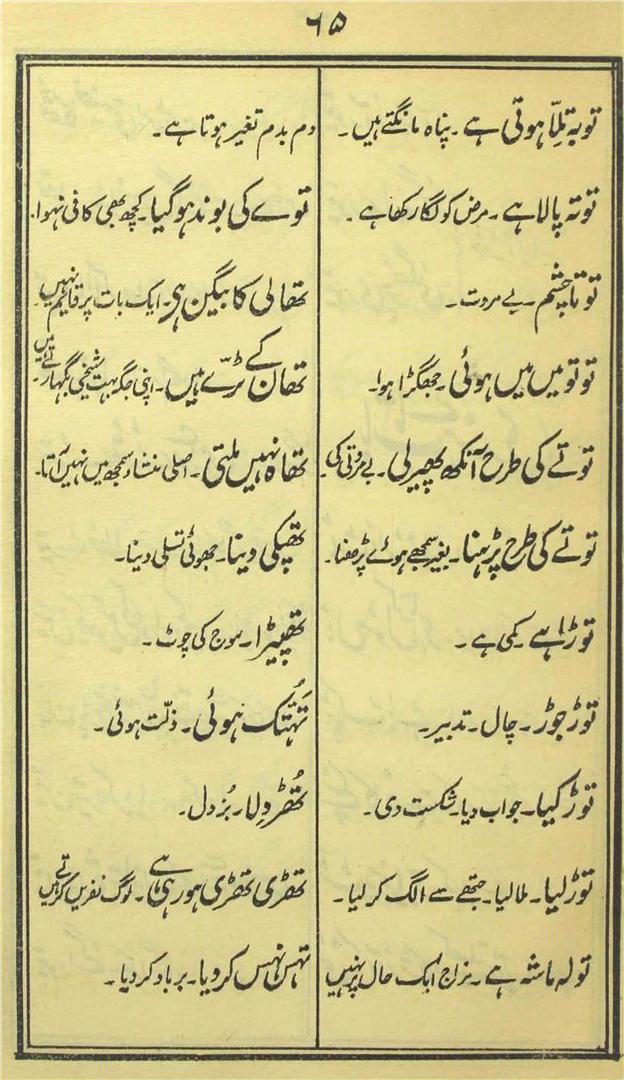 ۶۵
توبہ تلّا ہوتی ہے ۔ پناہ مانگتے ہیں ۔
توتہ پالا ہے ۔ مرض کو لگا رکھا ہے ۔
توتا چشم ۔ بے مروت ۔
توتو میں میں ہوئی ۔ جھگڑا ہوا۔
توتے کی طرح آنکھ پھیر لی ۔ بے مروتی کی
توتے کی طرح پڑہنا ۔ بغیر سمجھے ہوئے پڑھنا ۔
توڑا ہے ۔ کمی ہے ۔
توڑ جوڑ ۔ چال ۔ تدبیر ۔
توڑ کیا ۔ جواب دیا ۔ شکست دی ۔
توڑ لیا ۔ ملا لیا ۔ جتھے سے الگ کر لیا ۔
تولہ ماشہ ہے ۔ مزاج ایک حال پر نہیں
دم بدم تغیر ہوتا ہے ۔
توے کی بوند ہو گیا ۔ کچھ بھی کافی نہوا۔
تھالی کا بیگن ہی ۔ ایک بات پر قایم نہیں۔
تھان کے ٹرّے ہیں ۔ اپنی جگہ بہت شیخی بگھارتے ہیں ۔
تھاہ نہیں ملتی ۔ اصلی منشاء سمجھ میں نہیں آتا۔
تھپکی دینا ۔ جھوٹی تسلی دینا ۔
تھپیڑا ۔ موج کی چوٹ ۔
تَہُتک ہوئی ۔ ذلّت ہوئی ۔
تُھڑدِلا ۔ بُزدل ۔
تھڑی تھڑی ہو رہی ہے ۔ لوگ نفریں کرتے ہیں
تہس نہس کر دیا ۔ برباد کر دیا ۔